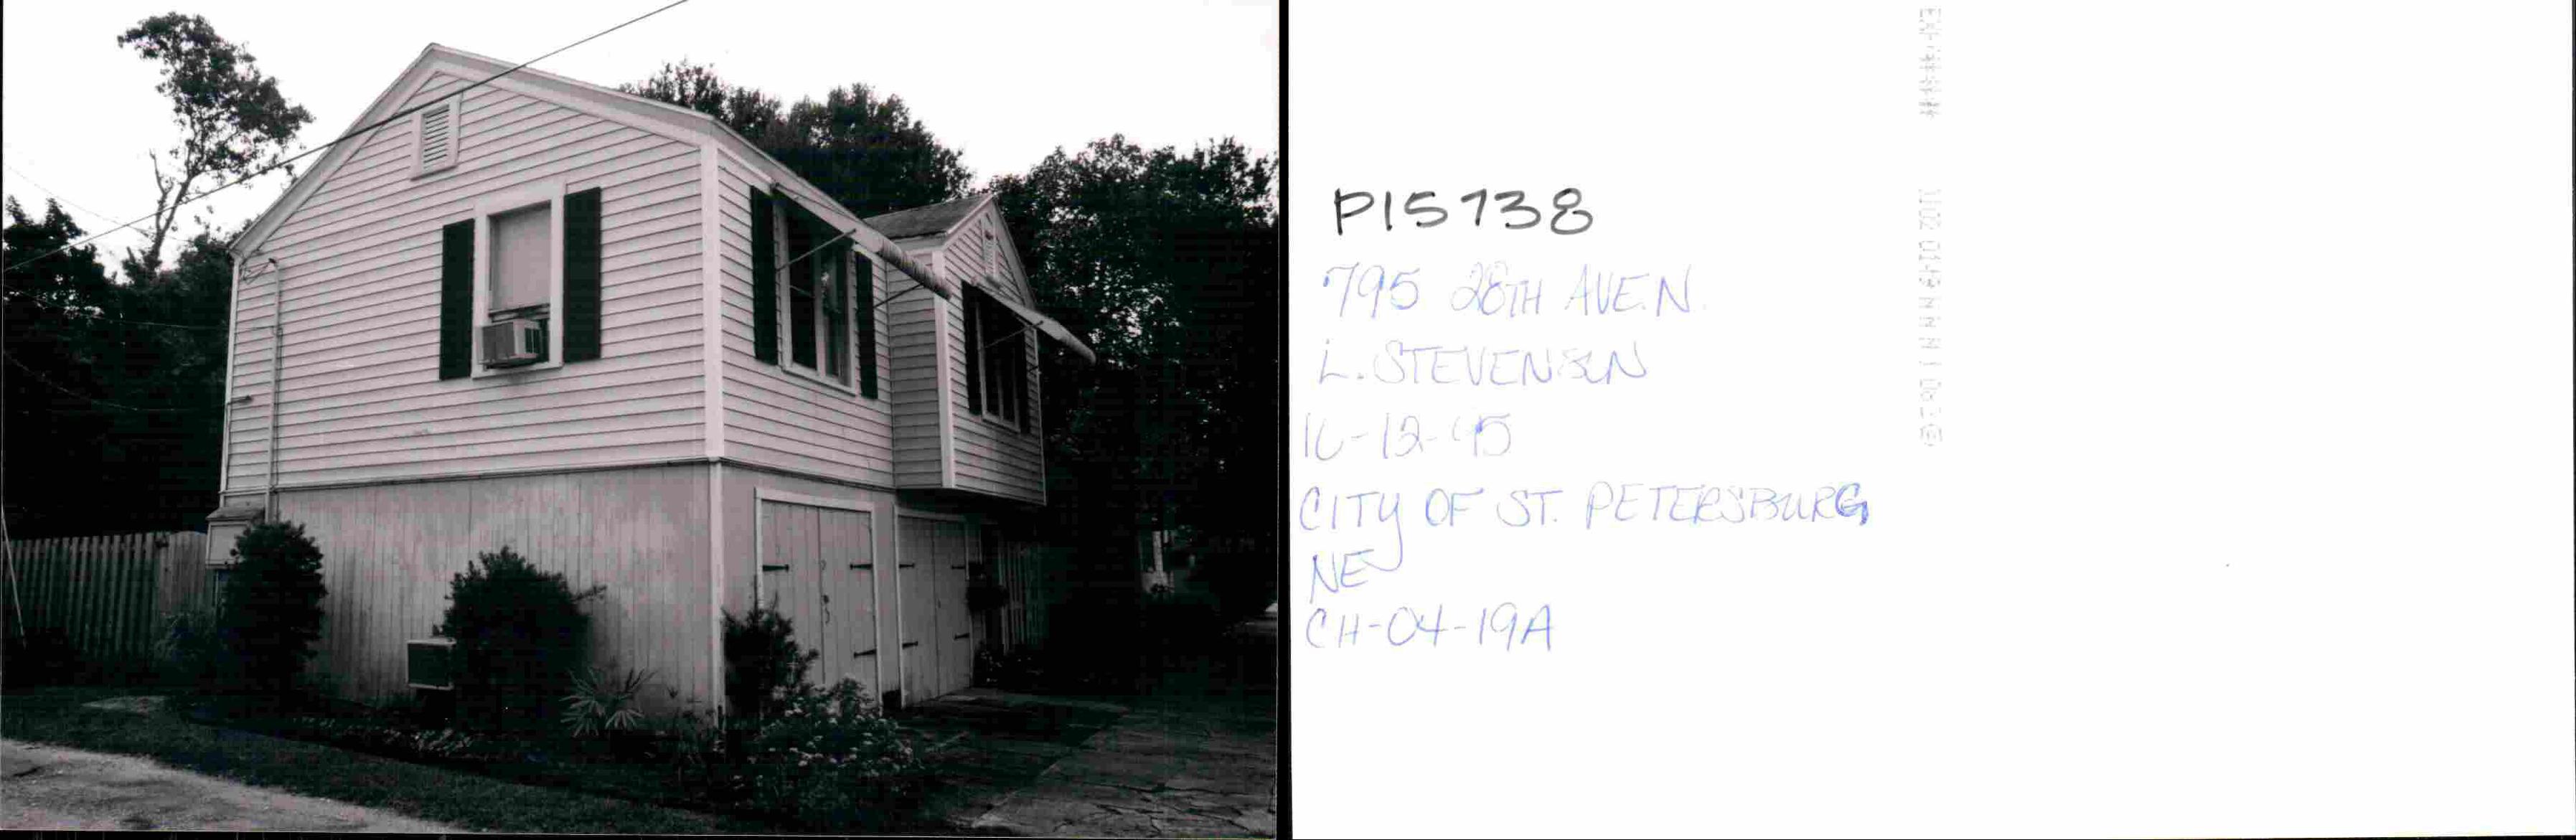 PI5738
795 28TH AVE. N.
L. STEVENSON
10-12-95
CITY OF ST. PETERSBURG
NE
CH-04-19A